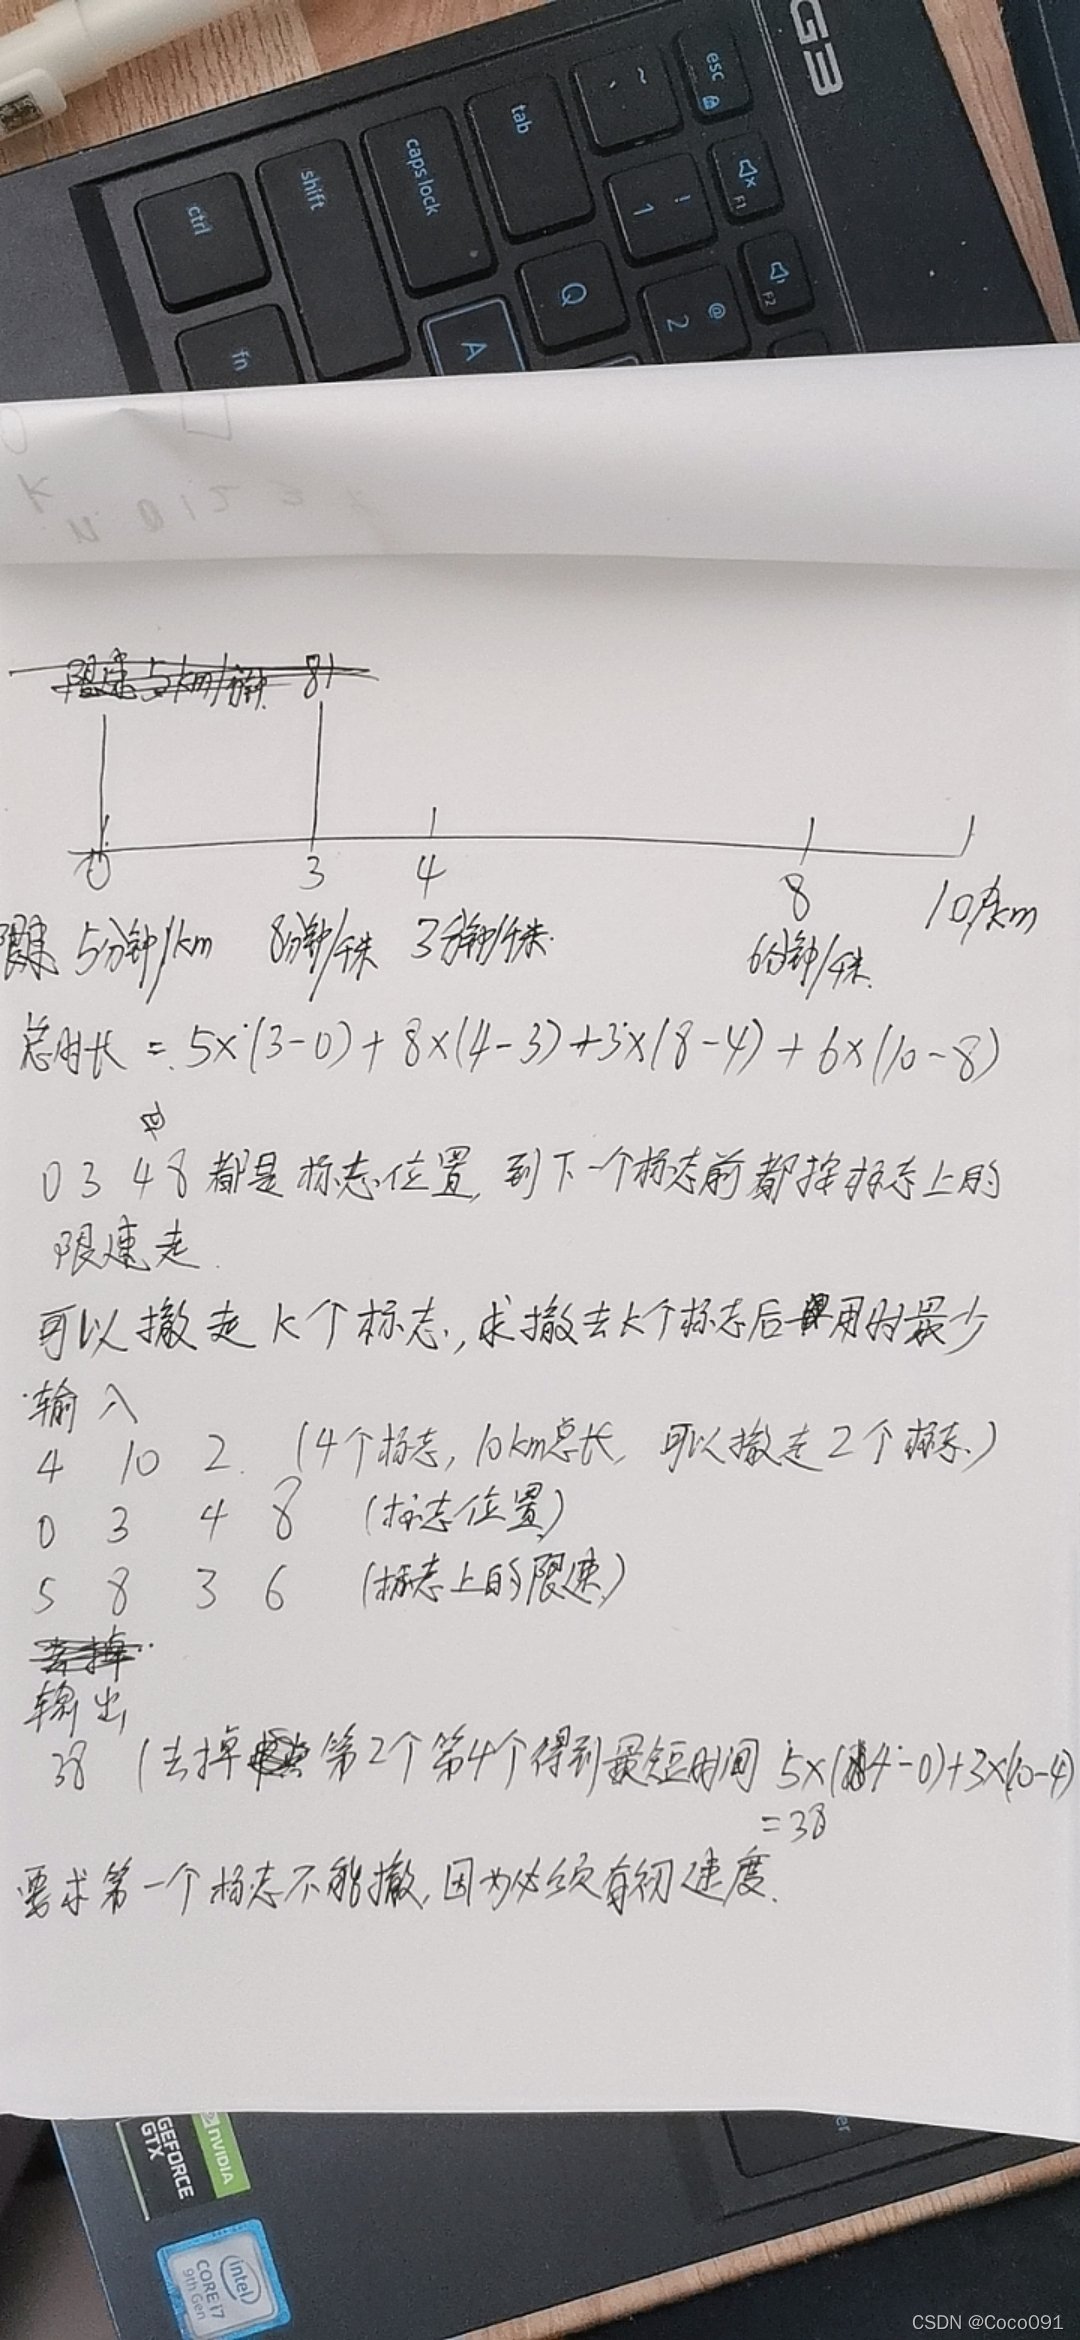 G3
esc
~
`
tab
caps lock
shift
ctrl
F1
!
1
F2
@
2
Q
A
fn
K
N 0 1 2 3
限速 5km/分钟 8
0 3 4 8 10km
限速 5分钟/km 8分钟/千米 3分钟/千米 6分钟/千米
总时长 = 5×(3-0)+8×(4-3)+3×(8-4)+6×(10-8)
0 3 4 8 都是标志位置,到下一个标志前都按标志上的
限速走.
可以撤走K个标志,求撤去K个标志后用时最少
输入
4 10 2. (4个标志,10km总长,可以撤走2个标志)
0 3 4 8 (标志位置)
5 8 3 6 (标志上的限速)
去掉
输出
38 (去掉 第2个第4个得到最短时间 5×(4-0)+3×(10-4)
=38
要求第一个标志不能撤,因为必须有初速度.
er
NVIDIA
GEFORCE
GTX
intel
CORE i7
9th Gen
CSDN @Coco091